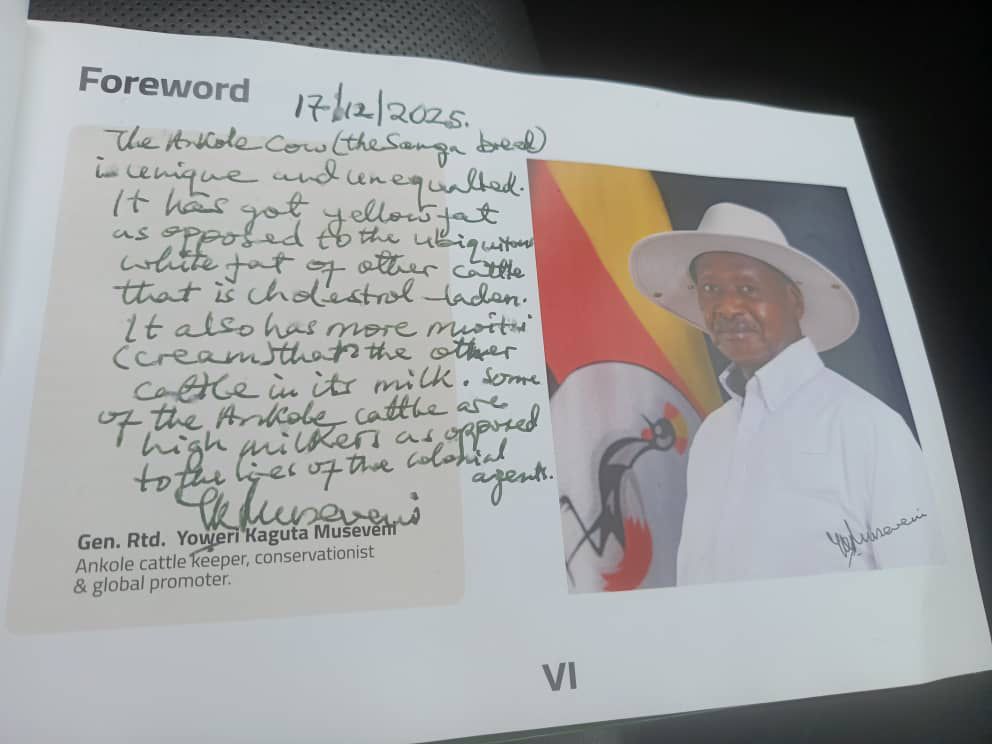 Foreword
17/12/2025.
The Ankole Cow (the Sanga breed)
is unique and unequalled.
It has got yellow fat
as opposed to the ubiquitous
white fat of other cattle
that is cholestrol-laden.
It also has more
(cream) than the other
cattle in its milk. Some
of the Ankole cattle are
high milkers as opposed
to the lies of the colonial
agents.
YKMuseveni
Gen. Rtd. Yoweri Kaguta Museveni
Ankole cattle keeper, conservationist
& global promoter.
YKMuseveni
VI